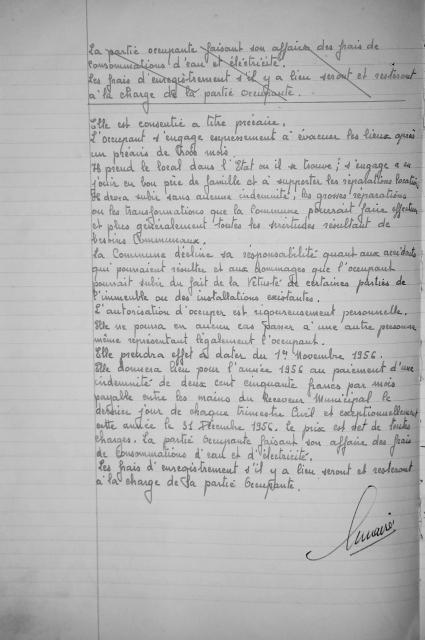 La partie occupante faisant son affaire des frais de
consommations d'eau et électricité.
Les frais d'enregistrement s'il y a lieu seront et resteront
à la charge de la partie Occupante.
Elle est consentie à titre précaire.
L'occupant s'engage expressément à évacuer les lieux après
un préavis de trois mois.
Il prend le local dans l'Etat où il se trouve; s'engage à en
jouir en bon père de famille et à supporter les réparations locatives
Il devra subir sans aucune indemnité, les grosses réparations
ou les transformations que la Commune pourrait faire effectuer
et plus généralement toutes les servitudes résultant de
besoins Communaux.
La Commune décline sa responsabilité quant aux accidents
qui pourraient résulter et aux dommages que l'occupant
pourrait subir du fait de la Vétusté de certaines parties de
l'immeuble ou des installations existantes.
L'autorisation d'occuper est rigoureusement personnelle.
Elle ne pourra en aucun cas passer à une autre personne
même représentant légalement l'occupant.
Elle prendra effet à dater du 1er Novembre 1956.
Elle donnera lieu pour l'année 1956 au paiement d'une
indemnité de deux cent cinquante francs par mois
payable entre les mains du Receveur Municipal le
dernier jour de chaque trimestre Civil et exceptionnellement
cette année le 31 Décembre 1956. Le prix est net de toutes
charges. La partie Occupante faisant son affaire des frais
de Consommations d'eau et d'électricité.
Les frais d'enregistrement s'il y a lieu seront et resteront
à la charge de la partie Occupante.